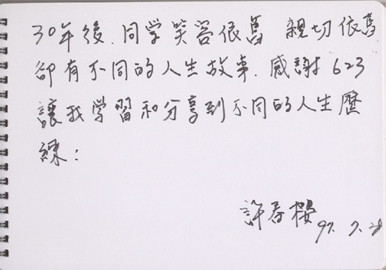 30年後.同学笑容依舊 親切依舊
卻有不同的人生故事.感謝623
讓我学習和分享到不同的人生歷
練:
許春櫻
97.7.28